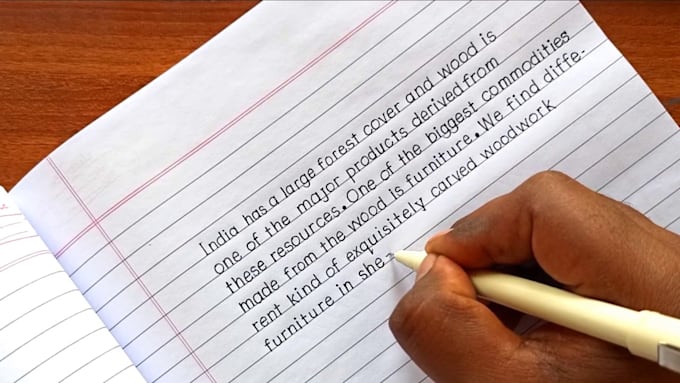 India has a large forest cover and wood is
one of the major products derived from
these resources. One of the biggest commodities
made from the wood is furniture. We find diffe-
rent kind of exquisitely carved woodwork
furniture in she